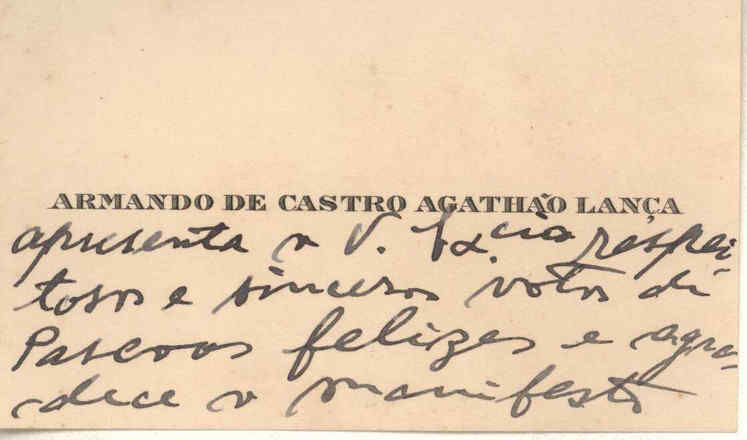 ARMANDO DE CASTRO AGATHÃO LANÇA
apresenta a V. Ex.cia respei-
tosos e sinceros votos de
Pascoas felizes e agra-
dece o manifesto